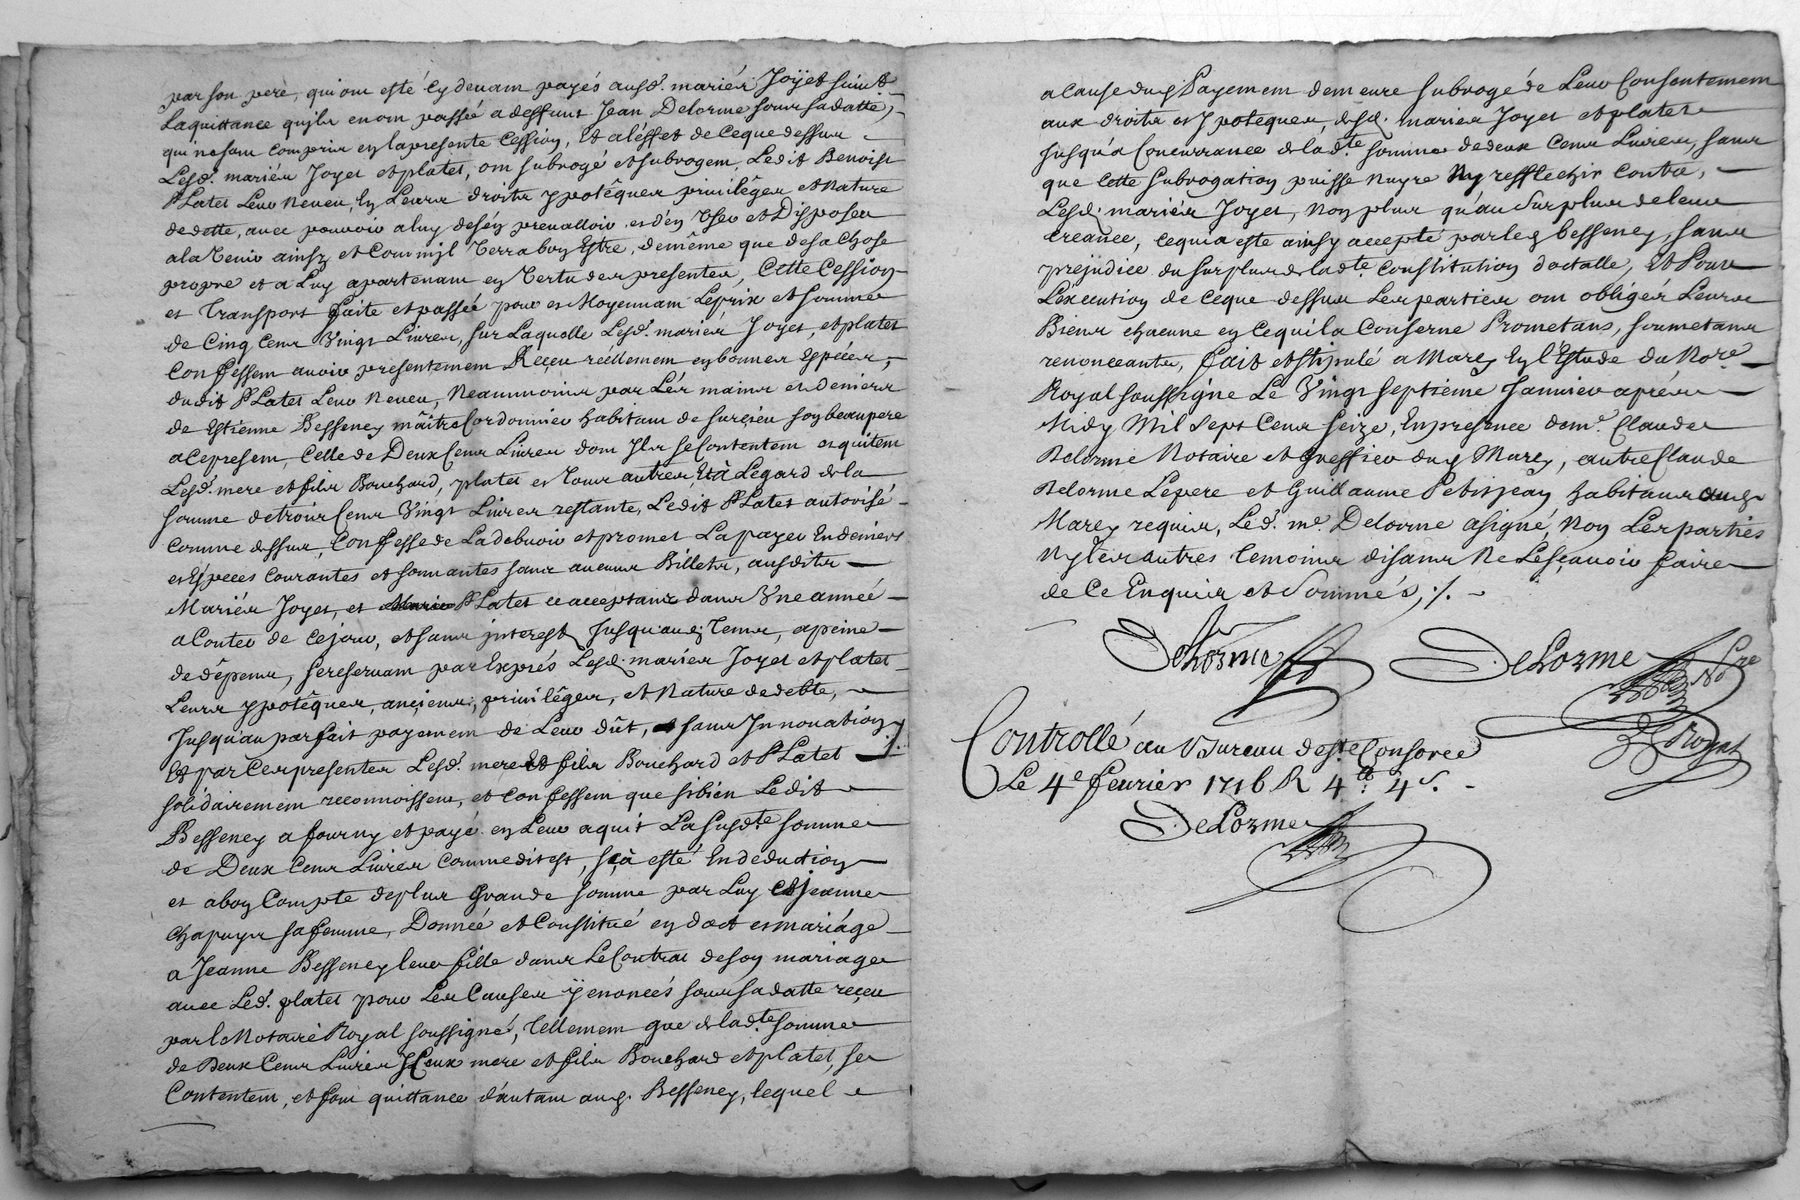 par son pere, qui ont esté cy devant payés ausd. mariés Joyet suivt.
Laquittance qu'ils en ont passée a deffunt Jean Delorme sous sa datte,
qui ne sont compris en la presente Cession, Et a l'effet de ce que dessus
Lesd. mariés Joyet et platet, ont subrogé et subrogent Ledit Benoist
Platet Leur neveu, En Leurs droits ypotêques privilêges et Nature
de dette, avec pouvoir a luy de s'en prevalloir et d'en User et Disposer
a la Venir ainsy et Comm'il Verra bon Estre, de même que de sa chose
propre et a Luy apartenant en Vertu des presentes, Cette Cession
et Transport faite et passée pour et Moyennant Leprix et somme
de Cinq Cens Vingt Livres, sur Laquelle Lesd. mariés Joyet, et platet
Confessent avoir presentement Reçeu réellement en bonnes Espéces,
dudit Platet Leur Neveu, Neaumoins par Les mains et deniers
de Estienne Besseney maître Cordonnier habitant de surcieu son beaupere
a ce present, Celle de Deux Cens Livres dont Ils se Contentent et quitent
Lesd. mere et fils Bouchard, platet et Tous autres, Et à Légard de la
somme de trois Cens Vingt Livres restante, Ledit Platet autorisé
comme dessus, Confesse de La debvoir et promet La payer En deniers
et Espèces Courantes et sonnantes sans aucuns Billets, ausdits
Mariés Joyet, et Platet ce acceptans dans Une année
a Conter de ce jour, et sans interest Jusqu'aud. Tems, apeine
de dêpens, se reservant par Exprés Lesd. mariés Joyet et platet
Leurs ypotêques, anciens, privilêges, et Nature de debte,
Jusqu'au parfait payement de Leur dût, sans Innovation ./.
Et par Ces presentes Lesd. mere Et fils Bouchard et Platet
solidairement reconnoissent, et Confessent que si bien Ledit
Besseney a fourny et payé en Leur aquit La susdte. somme
de Deux Cens Livres Comme dit est, s'ça esté En deduction
et a bon Compte de plus Grande somme par Luy et Jeanne
Chapuys sa femme, Donnée et Constitué en doct et mariáge
a Jeanne Besseney leur fille dans Le Contrat de son mariage
avec Led. platet pour Les Causes ÿ enoncés sous sa datte reçeu
par le Notaire Royal soussigné, Tellement que de ladte. somme
de Deux Cens Livres Iceux mere et fils Bouchard et platet, se
Contentent, et font quittance d'autant aud. Besseney, lequel
a Cause dud. Payement demeure subrogé de Leur Consentement
aux droits et Ypoteques, desd. mariés Joyet et platet
Jusqu'a Concurrance de ladte. somme de deux Cens Livres, sans
que Cette subrogation puisse Nuyre Ny refflechir Contre,
Lesd. mariés Joyet, Non plus qu'au surplus de leur
creance, ce qui a esté ainsy accepté par led. besseney, sans
prejudice du surplus de ladte. Constitution doctalle, Et Pour
L'execution de Ceque dessus Les parties ont obligés Leurs
Biens chacune en Cequi la Conserne Prometans, soumetans
renonceants, fait et stipulé a Marcy En l'Estude du Nore.
Royal soussigne Le Vingt septieme Janvier aprés
Midy Mil Sept Cens seize, En presence de me. Claude
Delorme Notaire et Greffier dud. Marcy, autre Claude
Delorme Lepere et Guillaume Petitjean habitans aud.
Marcy requis, Led. me. Delorme a signé, Non Les parties
Ny les autres temoins disans Ne Lesçavoir faire
de Ce Enquis et Sommés, ./.
Delorme Delorme Nore
Royal
Controllé au Bureau de
Le 4e fevrier 1716 R 4tt. 4s.
Delorme